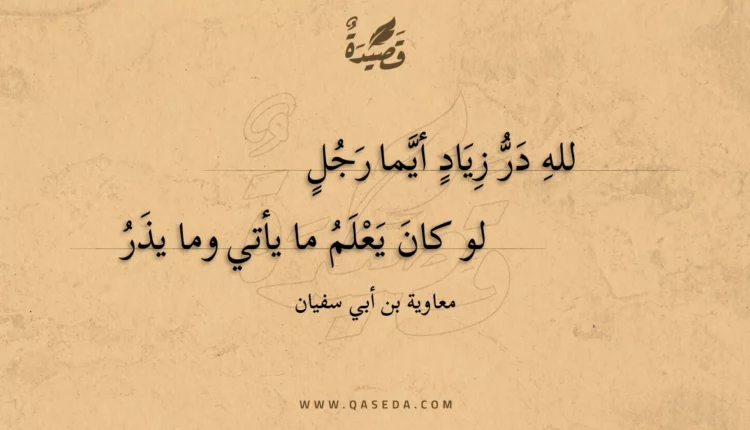 قَصِيدَةٌ
للهِ دَرُّ زِيَادٍ أيَّما رَجُلٍ
لو كانَ يَعْلَمُ ما يأتي وما يذَرُ
معاوية بن أبي سفيان
WWW.QASEDA.COM